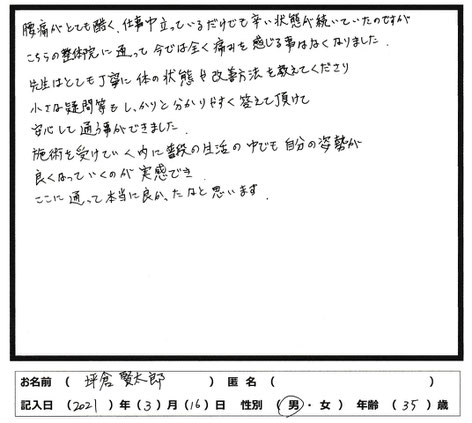 腰痛がとても酷く、仕事中立っているだけでも辛い状態が続いていたのですが
こちらの整体院に通って今では全く痛みを感じる事はなくなりました.
先生はとても丁寧に体の状態や改善方法を教えてくださり
小さな疑問等もしっかりと分かりやすく答えて頂けて
安心して通う事ができました.
施術を受けていく内に普段の生活の中でも自分の姿勢が
良くなっていくのが実感でき.
ここに通って本当に良かったなと思います.
お名前 ( 坪倉賢太郎 ) 匿名 ( )
記入日 (2021) 年 (3) 月 (16) 日 性別 (男・女) 年齢 (35) 歳